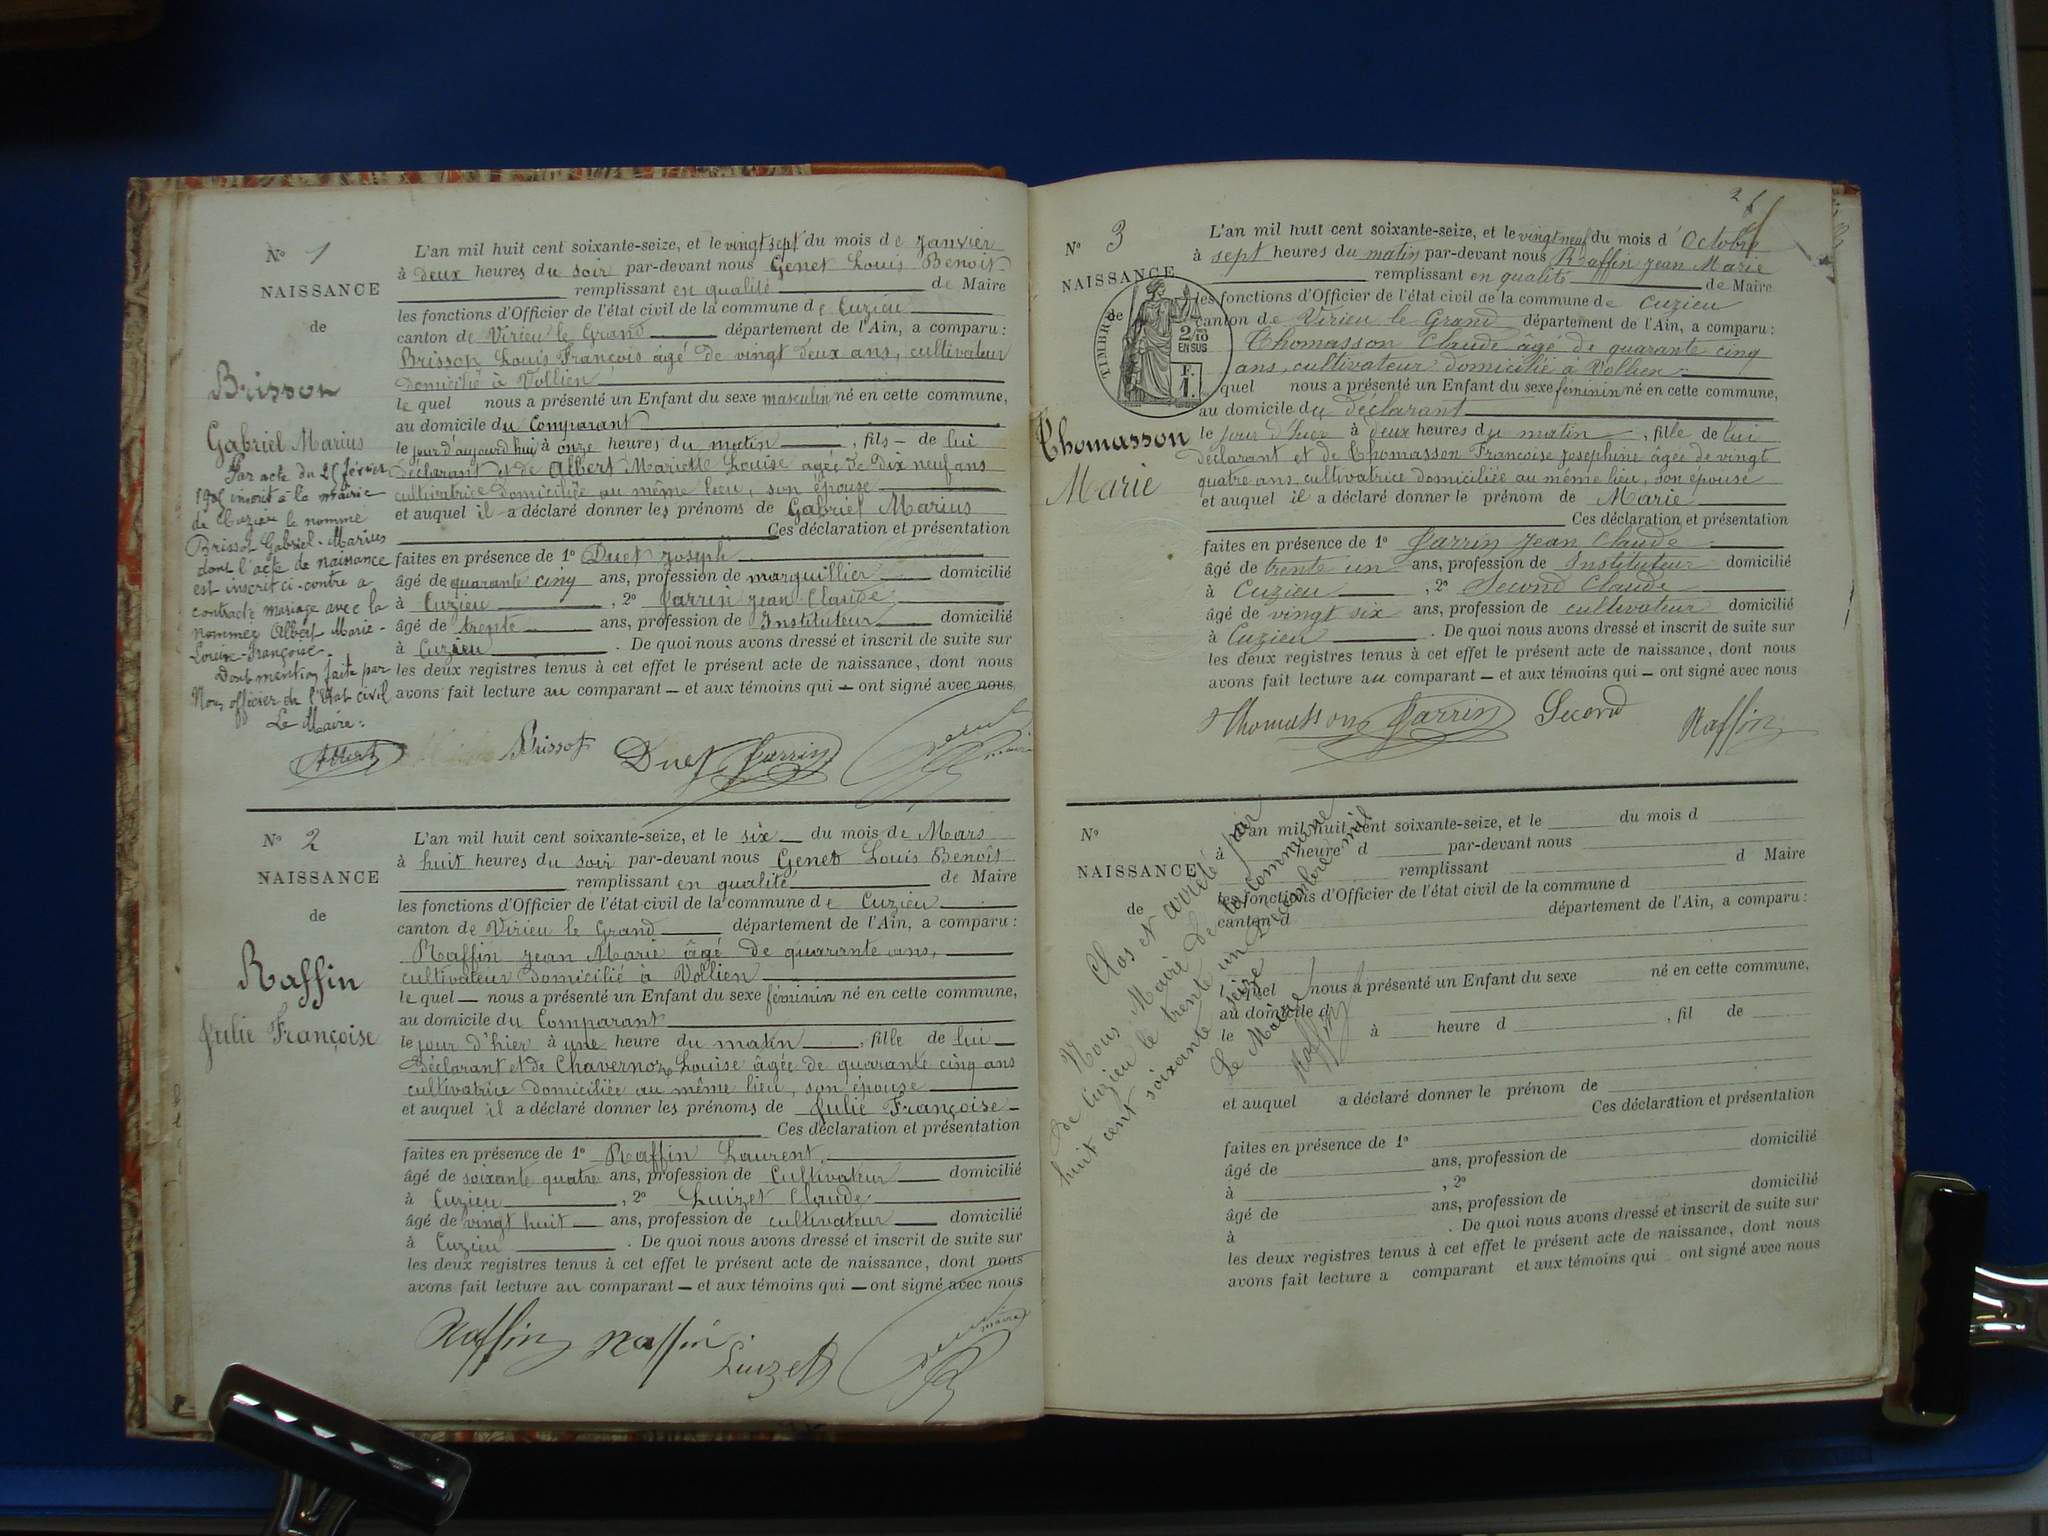 N° 1
NAISSANCE
de
Brisson
Gabriel Marius
Par acte du 25 février
1905 inscrit à la mairie
de Cuzieu le nommé
Brissot Gabriel-Marius
dont l'acte de naissance
est inscrit ci-contre a
contracté mariage avec la
nommée Albert Marie-
Louise-Françoise.
Dont mention faite par
Nous officier de l'Etat civil
Le Maire:
Albert
L'an mil huit cent soixante-seize, et le vingt sept du mois de Janvier
à deux heures du soir par-devant nous Genet Louis Benoit
remplissant en qualité de Maire
les fonctions d'Officier de l'état civil de la commune de Cuzieu
canton de Virieu le Grand département de l'Ain, a comparu :
Brisson Louis François âgé de vingt deux ans, cultivateur
domicilié à Vollien
le quel nous a présenté un Enfant du sexe masculin né en cette commune,
au domicile du Comparant
le jour d'aujourd'hui à onze heures du matin, fils de lui
déclarant et de Albert Mariette Louise agée de dix neuf ans
cultivatrice domiciliée au même lieu, son épouse
et auquel il a déclaré donner les prénoms de Gabriel Marius
Ces déclaration et présentation
faites en présence de 1° Duet Joseph
âgé de quarante cinq ans, profession de marguillier domicilié
à Cuzieu, 2° Jarrin Jean Claude
âgé de trente ans, profession de Instituteur domicilié
à Cuzieu. De quoi nous avons dressé et inscrit de suite sur
les deux registres tenus à cet effet le présent acte de naissance, dont nous
avons fait lecture au comparant — et aux témoins qui — ont signé avec nous
Brissot Duet Jarrin Maire
N° 2
NAISSANCE
de
Raffin
Julie Françoise
L'an mil huit cent soixante-seize, et le six du mois de Mars
à huit heures du soir par-devant nous Genet Louis Benoît
remplissant en qualité de Maire
les fonctions d'Officier de l'état civil de la commune de Cuzieu
canton de Virieu le Grand département de l'Ain, a comparu :
Raffin Jean Marie âgé de quarante ans,
cultivateur domicilié à Vollien
le quel — nous a présenté un Enfant du sexe féminin né en cette commune,
au domicile du Comparant
le jour d'hier à une heure du matin, fille de lui
Déclarant et de Chavernoz Louise âgée de quarante cinq ans
cultivatrice domiciliée au même lieu, son épouse
et auquel il a déclaré donner les prénoms de Julie Françoise
Ces déclaration et présentation
faites en présence de 1° Raffin Laurent
âgé de soixante quatre ans, profession de Cultivateur domicilié
à Cuzieu, 2° Luizet Claude
âgé de vingt huit ans, profession de cultivateur domicilié
à Cuzieu. De quoi nous avons dressé et inscrit de suite sur
les deux registres tenus à cet effet le présent acte de naissance, dont nous
avons fait lecture au comparant — et aux témoins qui — ont signé avec nous
Raffin Raffin Luizet maire
2
N° 3
NAISSANCE
de
TIMBRE
2/10
EN SUS
F.
1.
Thomasson
Marie
L'an mil huit cent soixante-seize, et le vingt neuf du mois d' Octobre
à sept heures du matin par-devant nous Raffin Jean Marie
remplissant en qualité de Maire
les fonctions d'Officier de l'état civil de la commune de Cuzieu
canton de Virieu le Grand département de l'Ain, a comparu :
Thomasson Claude âgé de quarante cinq
ans, cultivateur domicilié à Vollien
quel nous a présenté un Enfant du sexe féminin né en cette commune,
au domicile du déclarant
le jour d'hier à deux heures du matin, fille de lui
déclarant et de Thomasson Françoise Josephine âgée de vingt
quatre ans cultivatrice domiciliée au même lieu, son épouse
et auquel il a déclaré donner le prénom de Marie
Ces déclaration et présentation
faites en présence de 1° Jarrin Jean Claude
âgé de trente un ans, profession de Instituteur domicilié
à Cuzieu, 2° Second Claude
âgé de vingt six ans, profession de cultivateur domicilié
à Cuzieu. De quoi nous avons dressé et inscrit de suite sur
les deux registres tenus à cet effet le présent acte de naissance, dont nous
avons fait lecture au comparant — et aux témoins qui — ont signé avec nous
Thomasson Jarrin Second Raffin
N°
NAISSANCE
de
L'an mil huit cent soixante-seize, et le du mois d
à heure d par-devant nous
remplissant d Maire
les fonctions d'Officier de l'état civil de la commune d
canton d département de l'Ain, a comparu :
quel nous a présenté un Enfant du sexe né en cette commune,
au domicile d
le à heure d , fil de
et auquel a déclaré donner le prénom de
Ces déclaration et présentation
faites en présence de 1°
âgé de ans, profession de domicilié
à , 2°
âgé de ans, profession de domicilié
à . De quoi nous avons dressé et inscrit de suite sur
les deux registres tenus à cet effet le présent acte de naissance, dont nous
avons fait lecture a comparant et aux témoins qui ont signé avec nous
Clos et arrêté par
Nous Maire de la Commune
de Cuzieu le trente un Décembre mil
huit cent soixante seize
Le Maire
Raffin